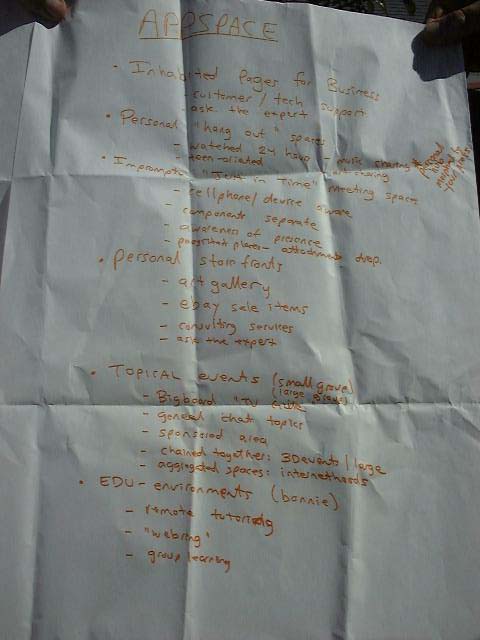 APPSPACE
• Inhabited Pages for Business
- customer/tech support
- ask the expert
• Personal "hang out" spaces
- watched 24 hours - music sharing
- teen-oriented art sharing
• Impromptu "Just in Time" meeting spaces
- cellphone/device aware
- components separate
- awareness of presence
- persistent places - attachments drop.
• Personal storefronts
- art gallery
- ebay sale items
- consulting services
- ask the expert
• TOPICAL events (small group)
(large group)
- Bigboard "TV
- general chat topics
- sponsored area
- chained together: 3D events/large
- aggregated spaces:
• EDU-environments (bonnie)
- remote tutoring
- "webring"
- group learning